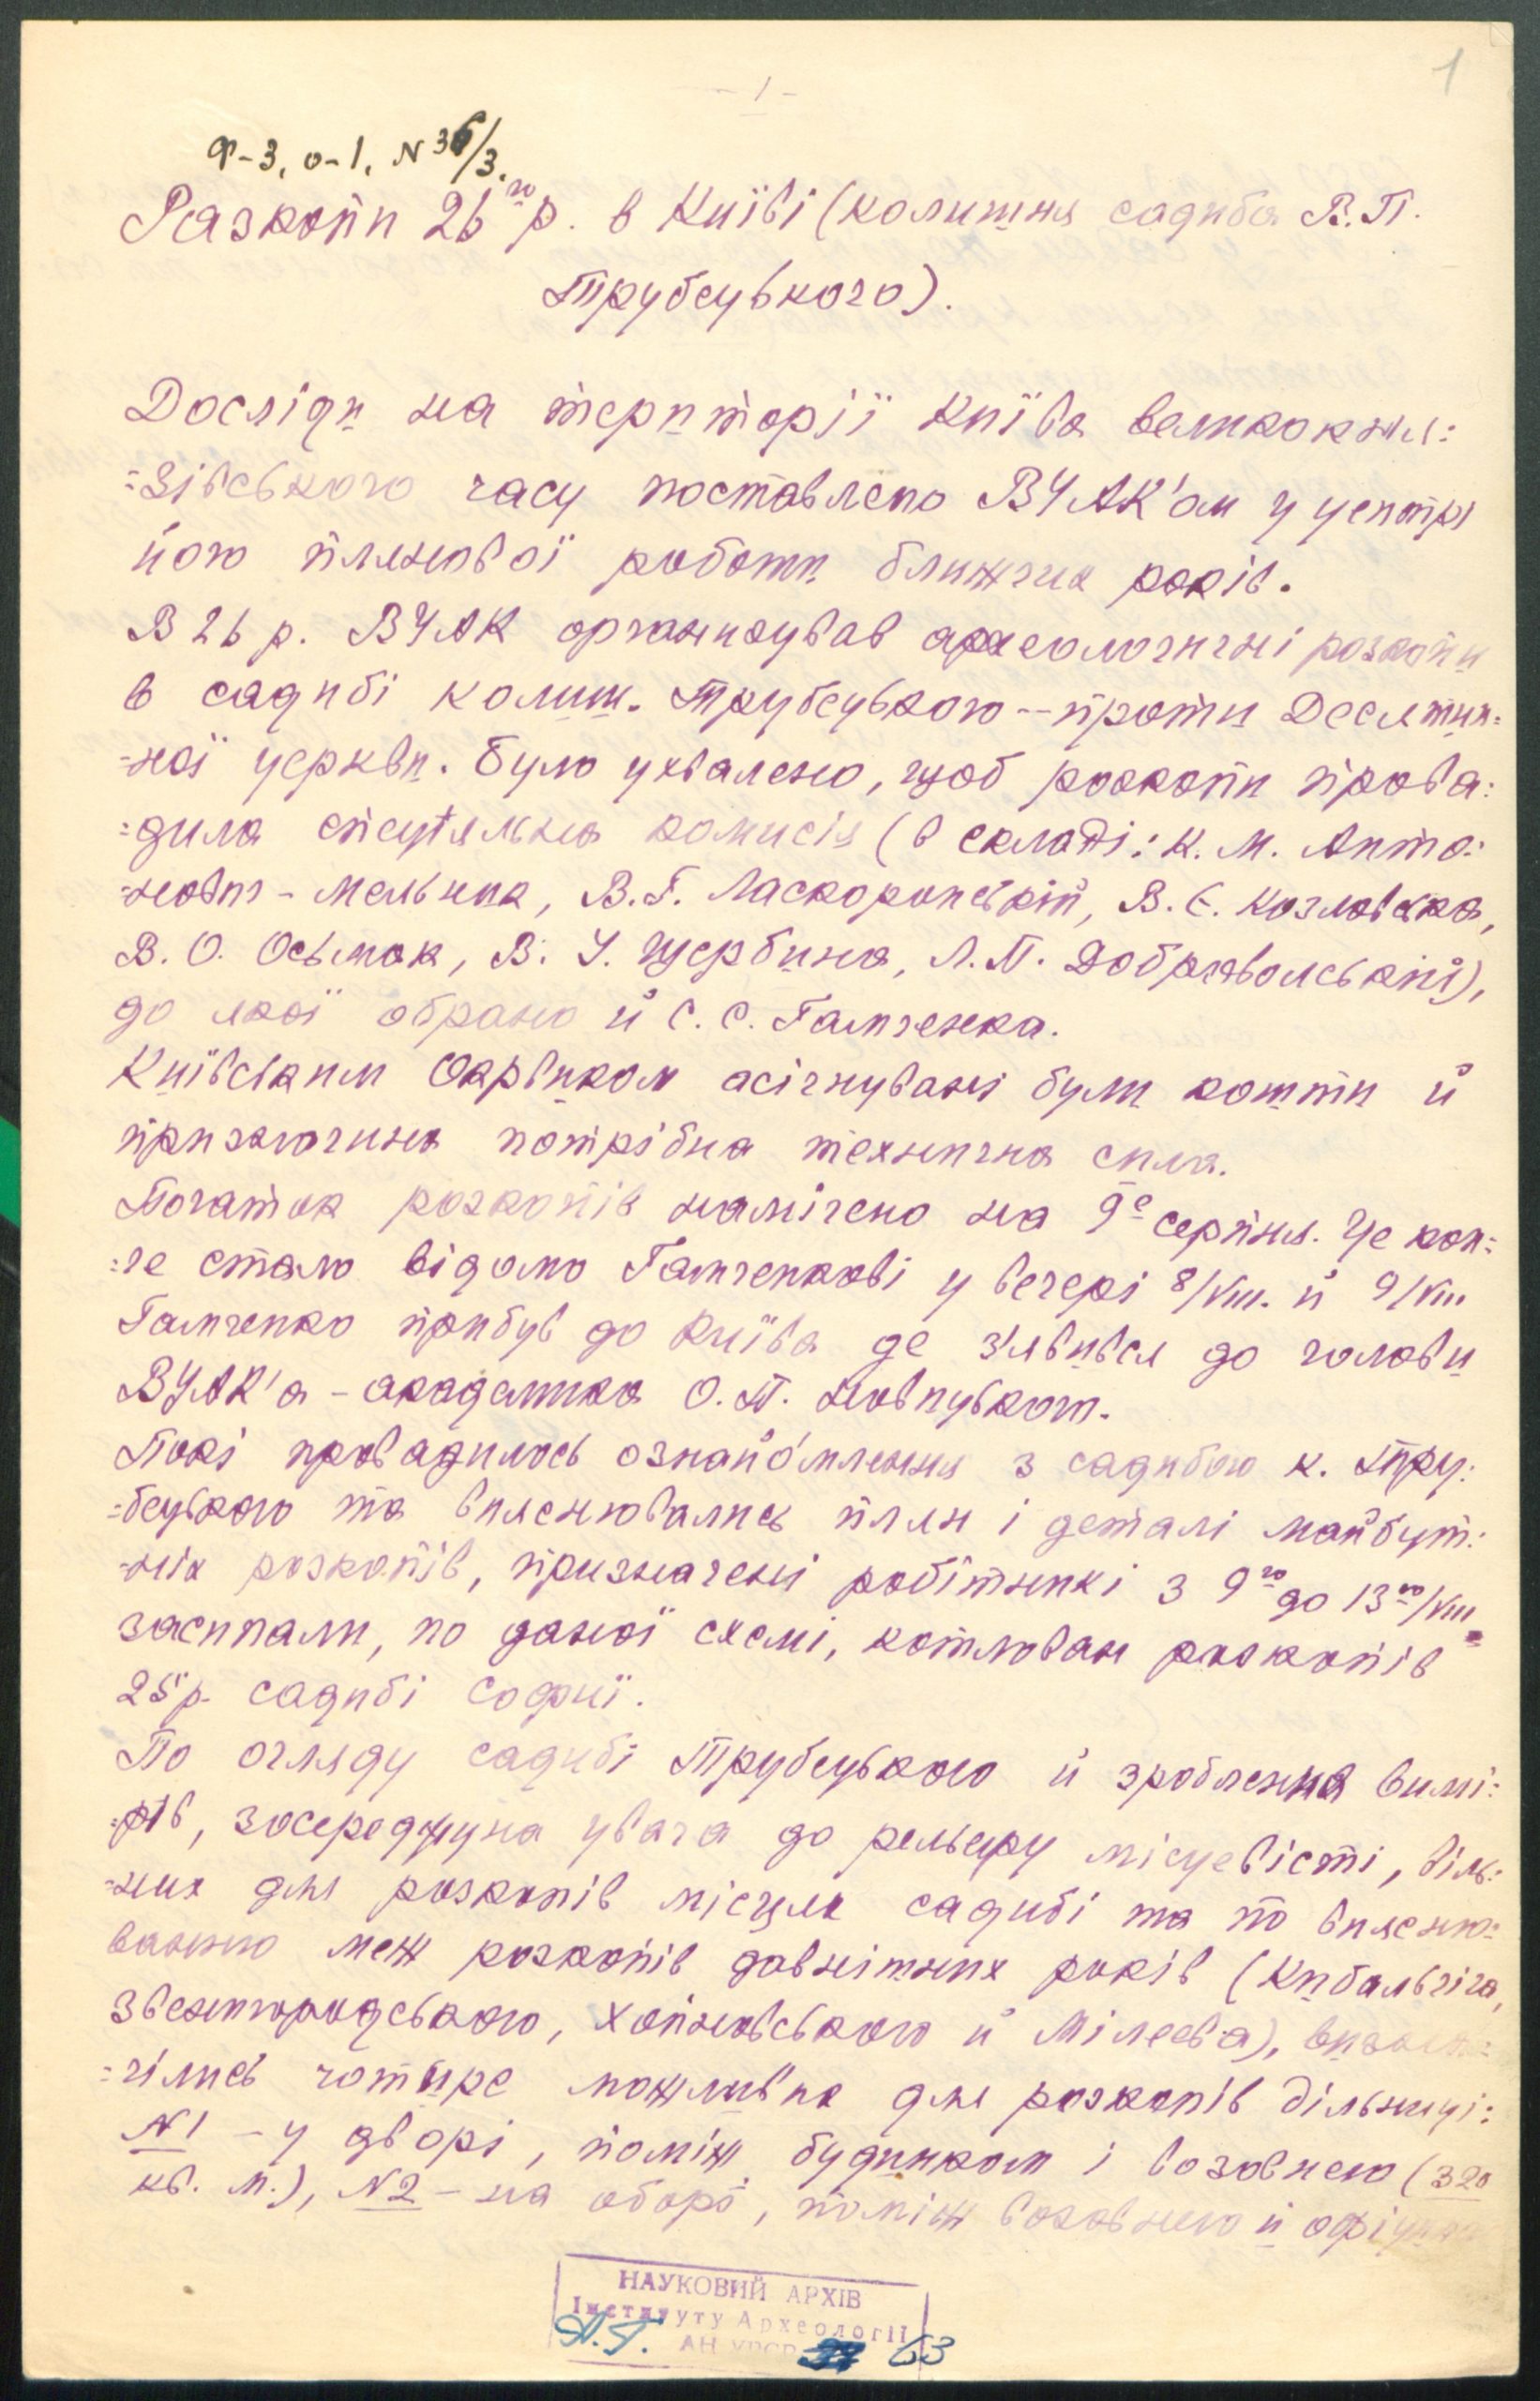 1
- 1 -
Ф-3, о-1, № 36/3.
Разкопи 26го р. в Київі (колишня садиба В.П.
Трубецького).
Досліди на територїї Київа великокня=
=зівського часу поставлено ВУАК'ом у центрі
його плянової роботи ближчих років.
В 26 р. ВУАК організував археологичні розкопи
в садибі колиш. Трубецького -- проти Десятин=
=ної церкви. Було ухвалено, щоб розкопи прова=
=дила спеціяльна комисія (в складі: К. М. Анто=
=нович - Мельник, В. Г. Ляскоронський, В. Є. Козловська,
В. О. Осьмак, В. І. Щербина, Л. П. Добровольський),
до якої обрано й С. С. Гамченка.
Київським Окрвиком асігнувані були кошти й
призначина потрібна технична сила.
Початок розкопів намічено на 9е серпня. Це кон=
=че стало відомо Гамченкові у вечері 8/VIII. й 9/VIII
Гамченко прибув до Київа де з'явився до голови
ВУАК'а - академика О. П. Новицького.
Покі провадилось ознайо́млення з садибою к. Тру=
=бецького та вияснювались плян і деталі майбут=
=ніх розкопів, призначені робітникі з 9го до 13го/VIII
засипали, по даної схемі, котлован розкопів
25 р. садибі Софиї.
По огляду садибі Трубецького й зроблення вимі=
=рів, зосереджуна увага до рельєфу місцевісті, віль=
=них для розкопів місцях садибі та по виясню=
ванню меж розкопів давнітних років (Кибальчіча,
Звенигородського, Хойновського й Мілєєва),
=чілись чотире можливих для розкопів дільниці:
№1 - у дворі, поміж будинком і возовнею (320
кв. м.), №2 - на оборі, поміж возовнею й
НАУКОВИЙ АРХІВ
Інституту Археології
АН УРСР
63